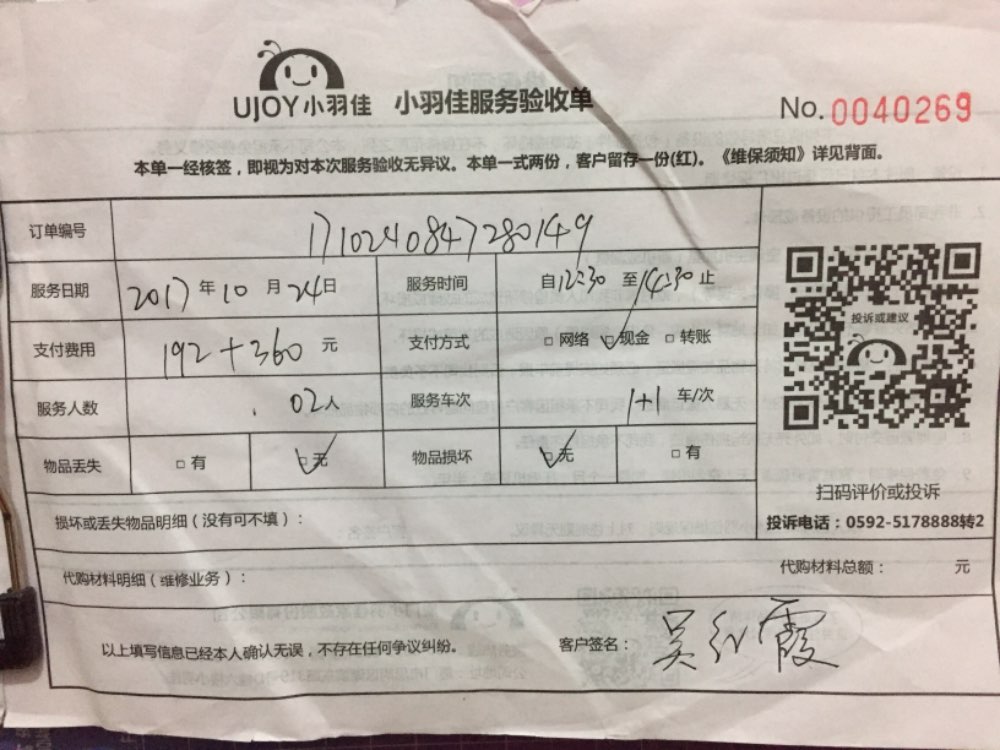 UJOY小羽佳 小羽佳服务验收单
No. 0040269
本单一经核签，即视为对本次服务验收无异议。本单一式两份，客户留存一份(红)。《维保须知》详见背面。
订单编号 1710240847280149
服务日期 2017年10月24日 服务时间 自12:30至14:30止
支付费用 192+360元 支付方式 □网络 ☑现金 □转账
服务人数 02人 服务车次 1+1车/次
物品丢失 □有 ☑无 物品损坏 ☑无 □有
投诉或建议
扫码评价或投诉
投诉电话：0592-5178888转2
损坏或丢失物品明细（没有可不填）：
代购材料明细（维修业务）： 代购材料总额： 元
以上填写信息已经本人确认无误，不存在任何争议纠纷。 客户签名：吴红霞